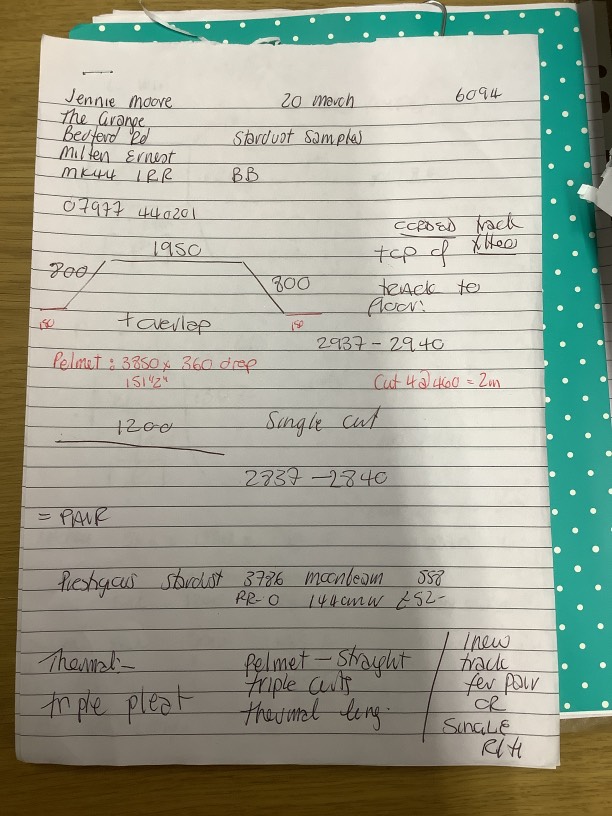 Jennie Moore 20 march 6094
The Grange
Bedford Rd Stardust Samples
Milton Ernest
MK44 1RR BB
07977 440201
CORDED track
top of
1950
800 800
track to
floor:
150 + overlap 150
2937 - 2940
Pelmet: 3850 x 360 drop
151 1/2"
Cut 4 @ 460 = 2m
1200 Single cut
2837 - 2840
= PAIR
Prestigious Stardust 3786 moonbeam 558
RR-0 144cmw £52-
Thermal:-
triple pleat
Pelmet - Straight
triple curts
thermal ling.
1 new
track
for pair
OR
SINGLE
R/H